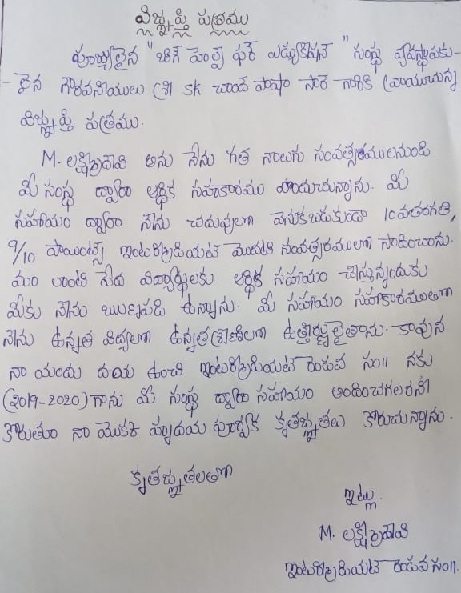 విజ్ఞప్తి పత్రము
పూజ్యులైన "బిగ్ హెల్ప్ ఫర్ ఎడ్యుకేషన్" సంస్థ వ్యవస్థాపకు-
-లైన గౌరవనీయులు శ్రీ SK చాంద్ పాషా సార్ గారికి వ్రాయుచున్న
విజ్ఞప్తి పత్రము.
M. లక్ష్మిప్రసాద్ అను నేను గత నాలుగు సంవత్సరములనుండి
మీ సంస్థ ద్వారా ఆర్థిక సహకారము పొందుచున్నాను. మీ
సహాయం ద్వారా నేను చదువులో వెనుకబడకుండా 10వతరగతి,
9/10 పాయింట్స్ ఇంటర్మీడియట్ మొదటి సంవత్సరములో సాధించాను.
మా లాంటి పేద విద్యార్థులకు ఆర్థిక సహాయం చేస్తున్నందుకు
మీకు నేను ఋణపడి ఉన్నాను. మీ సహాయం సహకారములతో
నేను ఉన్నత విద్యలో ఉన్నతశ్రేణిలో ఉత్తీర్ణులైతాను. కావున
నా యందు దయ ఉంచి ఇంటర్మీడియట్ రెండవ సం॥ నకు
(2019-2020)గాను మీ సంస్థ ద్వారా సహాయం అందించగలరని
కోరుతూ నా మొకటి హృదయ పూర్వక కృతజ్ఞతలు కోరుచున్నాను.
కృతజ్ఞతలతో
ఇట్లు
M. లక్ష్మిప్రసాద్
ఇంటర్మీడియట్ రెండవ సం॥.